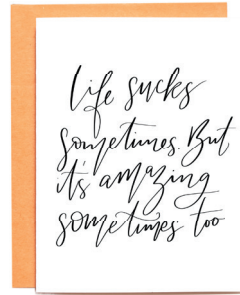 life sucks
sometimes. But
it's amazing
sometimes too